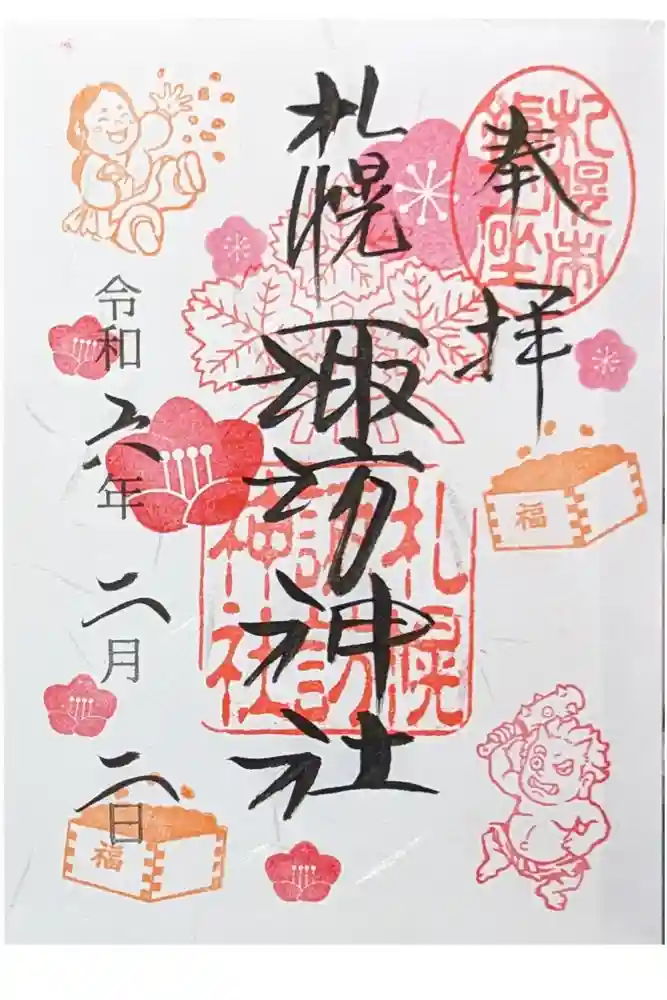 奉拝
札幌市鎮座
札幌諏訪神社
札幌
諏訪
神社
令和六年二月二日
福
福